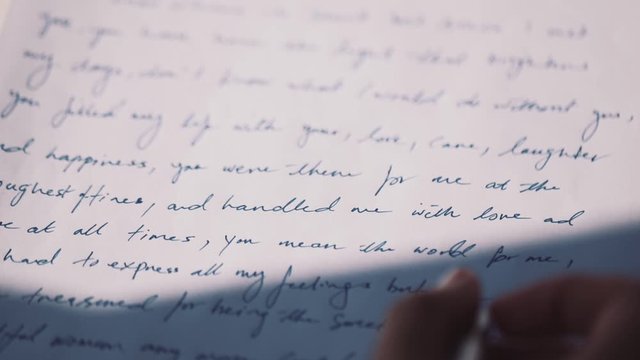 my days, don't know what I would do without you,
you filled my life with your, love, care, laughter
nd happiness, you were there for me at the
oughest times, and handled me with love ad
e at all times, you mean the world for me,
hard to express all my feelings but
treasured for being the sweet
tiful woman any man